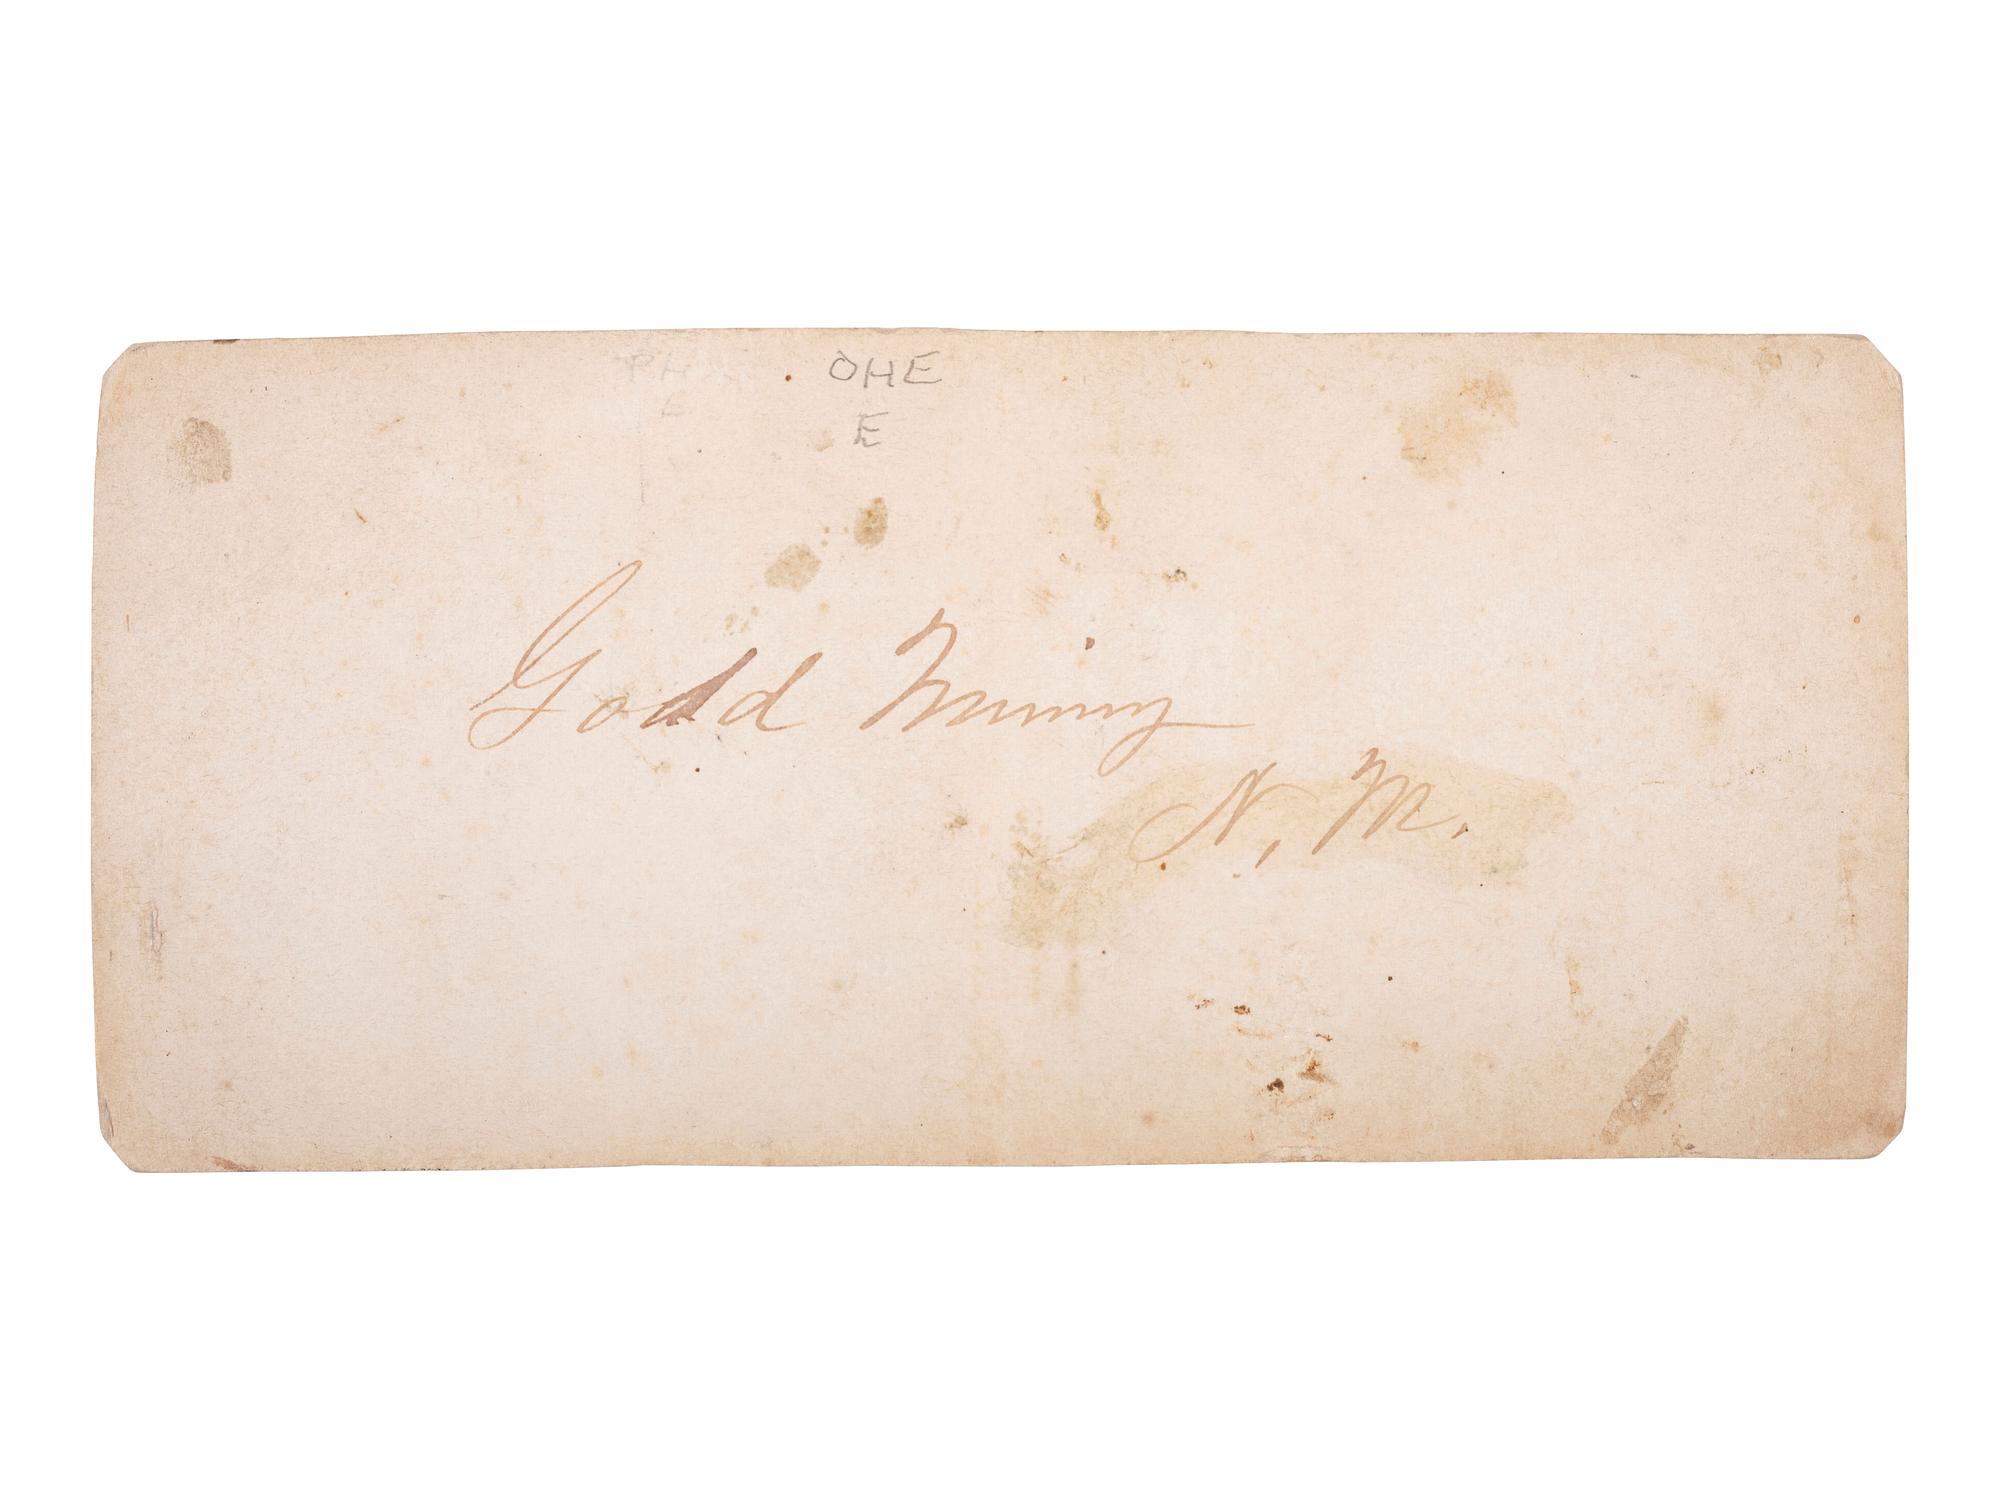 OHE
E
Gold Mining
N. M.